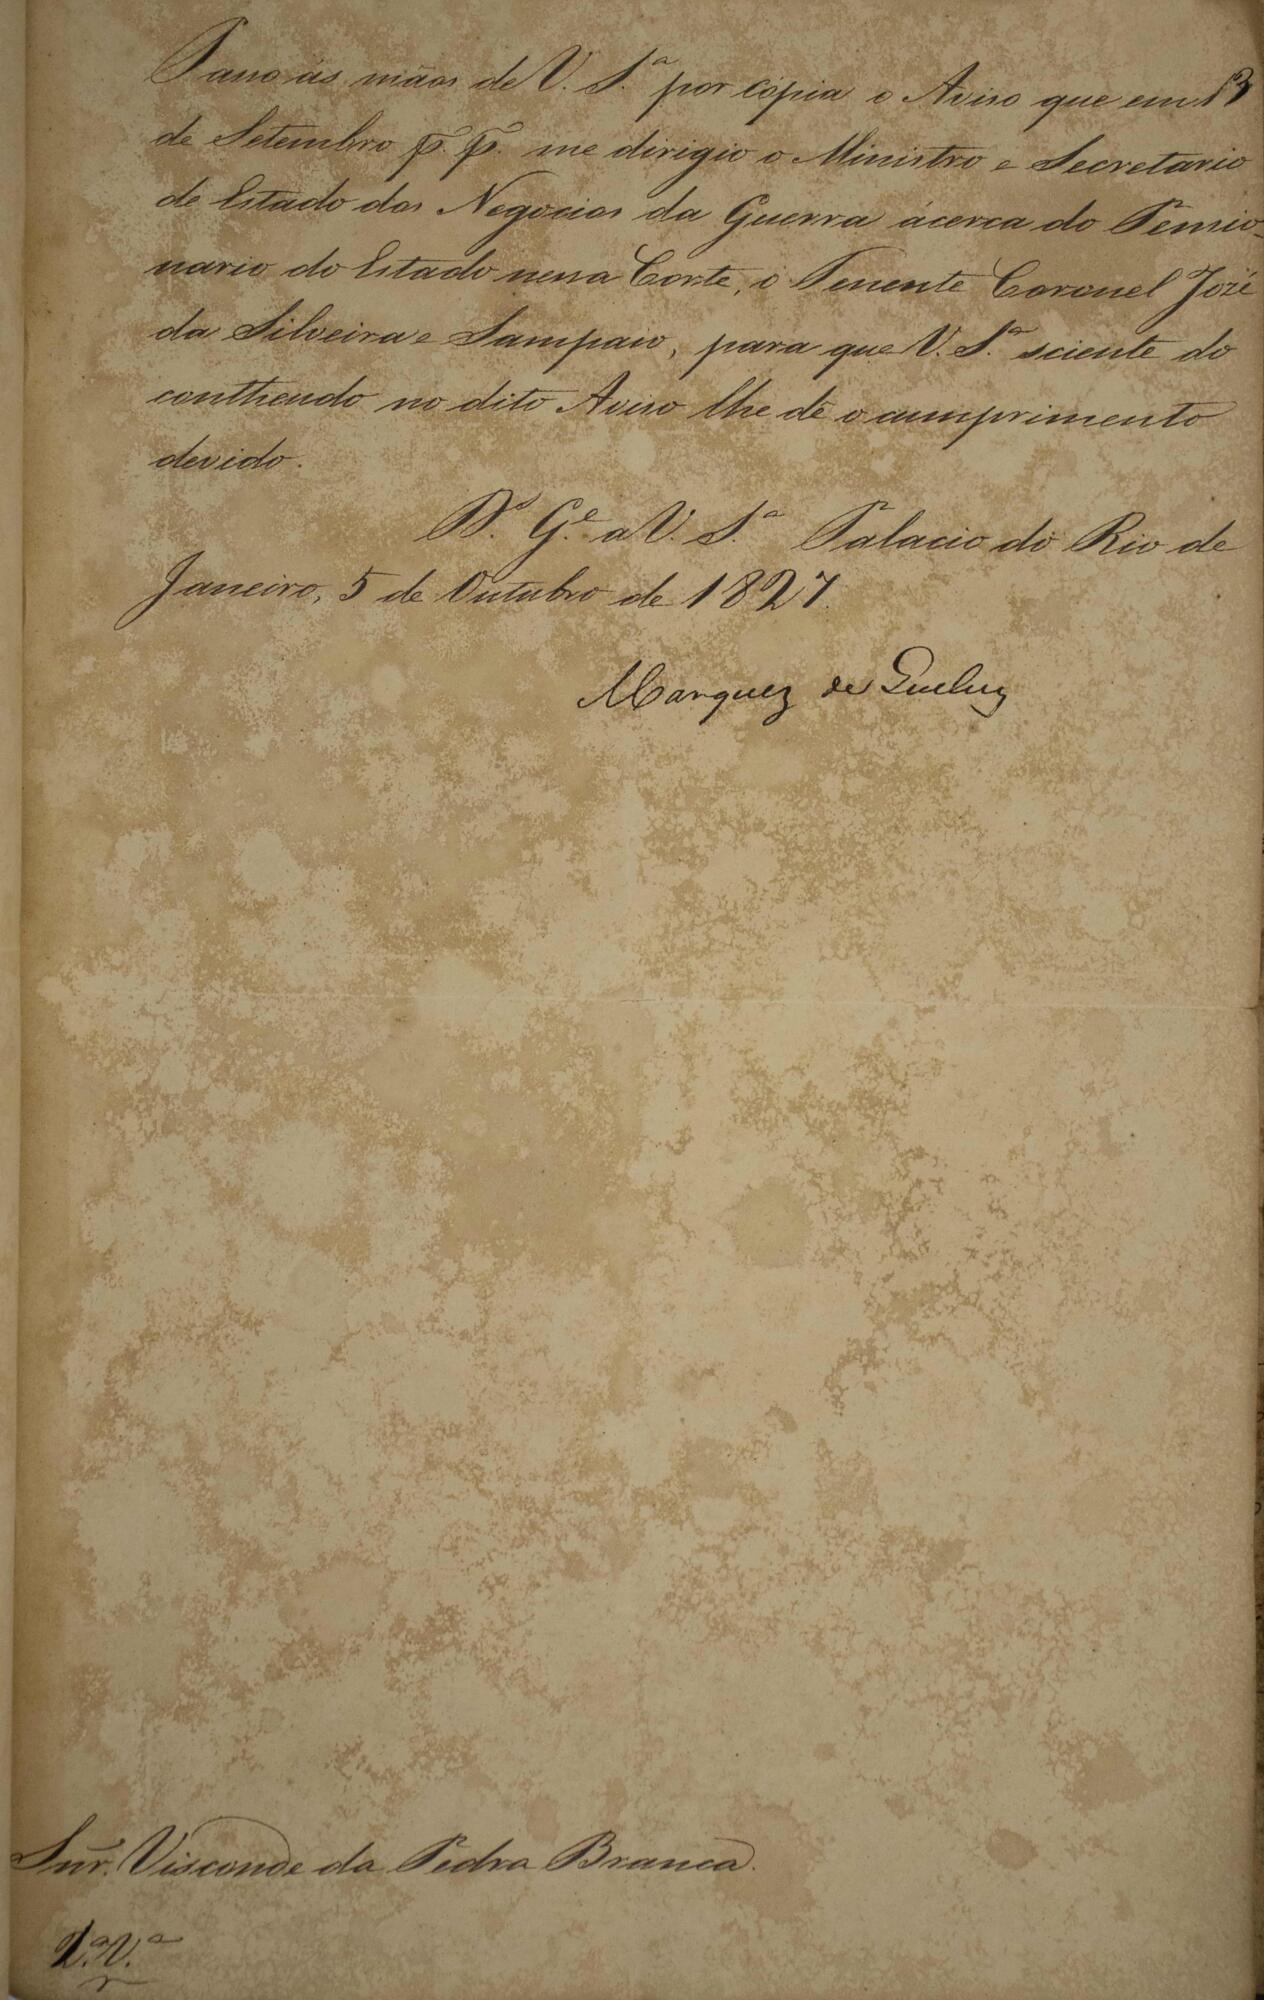 Passo ás mãos de V. S.ª por cópia o Aviso que em 13
de Setembro p. p. me dirigio o Ministro e Secretario
de Estado dos Negocios da Guerra ácerca do Pensio-
nario do Estado nessa Corte, o Tenente Coronel José
da Silveira e Sampaio, para que V. S.ª sciente do
contheudo no dito Aviso lhe dê o cumprimento
devido.
D.s G.e a V. S.ª Palacio do Rio de
Janeiro, 5 de Outubro de 1827.
Marquez de Queluz
Snr. Visconde da Pedra Branca.
2.ª V.ª